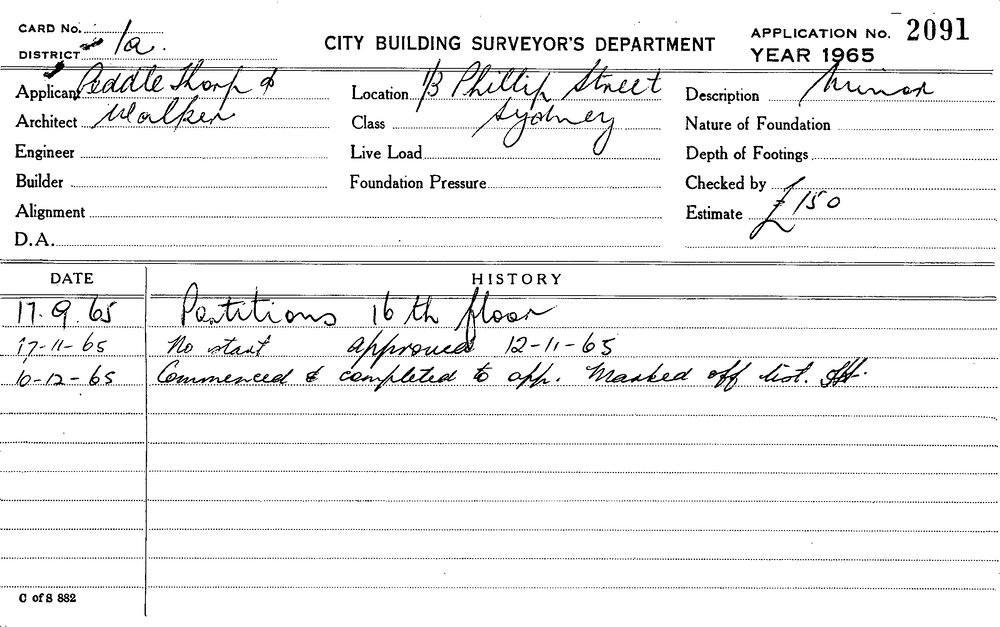 CARD No.
DISTRICT 1a.
CITY BUILDING SURVEYOR'S DEPARTMENT
APPLICATION No. 2091
YEAR 1965
Applicant Peddle Thorp &
Architect Walker
Engineer
Builder
Alignment
D.A.
Location 1/3 Phillip Street
Class Sydney
Live Load
Foundation Pressure
Description Minor
Nature of Foundation
Depth of Footings
Checked by
Estimate £150
DATE HISTORY
17.9.65 Partitions 16th floor
17-11-65 No start approved 12-11-65
10-12-65 Commenced & completed to app. Marked off list.
C of S 882